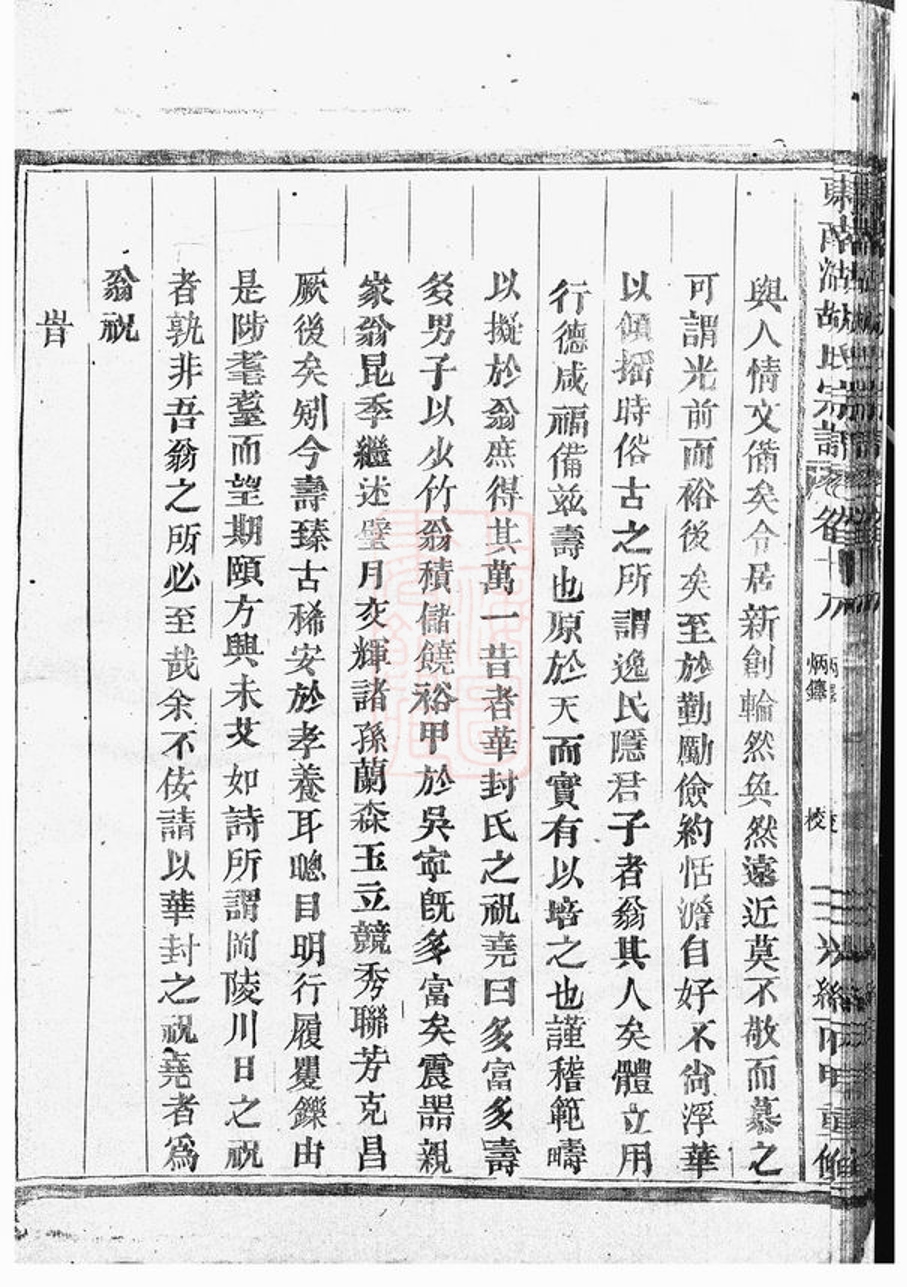 與人情文備矣令居新創輪然奐然遠近莫不敬而慕之
可謂光前而裕後矣至於勤勵儉約恬澹自好不尙浮華
以傾搖時俗古之所謂逸民隱君子者翁其人矣體立用
行德咸福備玆壽也原於天而實有以培之也謹稽範疇
以擬於翁庶得其萬一昔者華封氏之祝堯曰多富多壽
多男子以少竹翁積儲饒裕甲於吳寧旣多富矣震器親
家翁昆季繼述璧月交輝諸孫蘭森玉立競秀聯芳克昌
厥後矣矧今壽臻古稀安於孝養耳聰目明行履矍鑠由
是陟耄耋而望期頤方興未艾如詩所謂岡陵川日之祝
者孰非吾翁之所必至哉余不佞請以華封之祝堯者爲
翁祝
旹
胡氏宗譜
炳鐸
校
光緒
重修